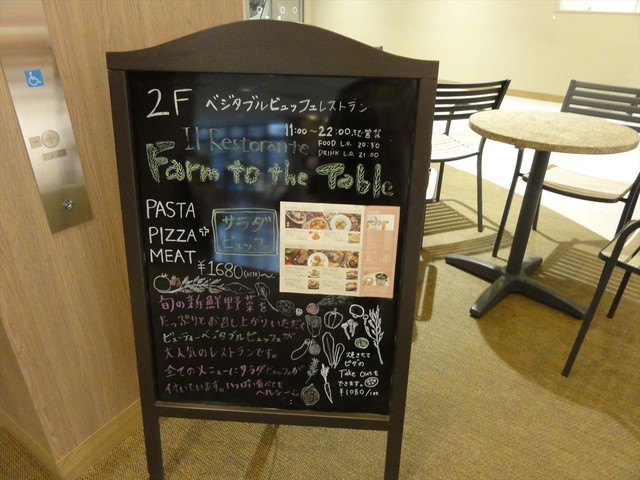 2F ベジタブルビュッフェレストラン
11:00～22:00まで営業
Il Restorante
FOOD L.O. 20:50
DRINK L.O. 21:00
Farm to the Table
PASTA
PIZZA
MEAT
+
サラダ
ビュッフェ
¥1680
旬の新鮮野菜を
たっぷりとお召し上がりいただく
ビューティーベジタブルビュッフェが
大人気のレストランです。
全てのメニューにサラダビュッフェが
付いています。いっぱい食べても
ヘルシー
焼きたて
ピザの
Take outも
できます。
¥1080